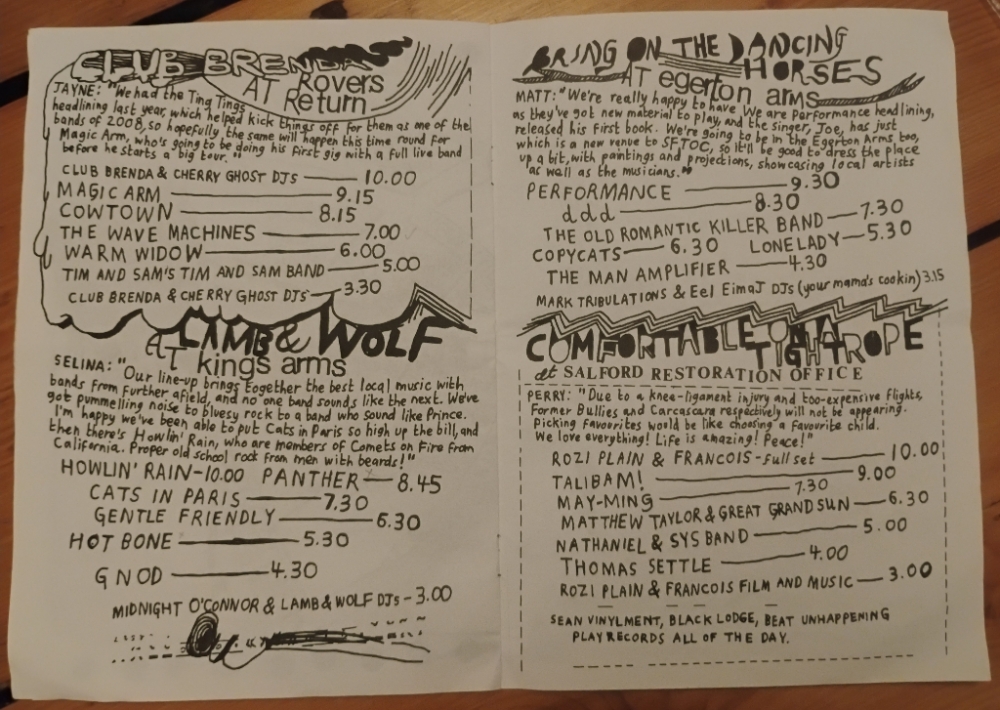 CLUB BRENDA
AT Rovers
Return
JAYNE: "We had the Ting Tings
headlining last year, which helped kick things off for them as one of the
bands of 2008, so hopefully the same will happen this time round for
Magic Arm, who's going to be doing his first gig with a full live band
before he starts a big tour."
CLUB BRENDA & CHERRY GHOST DJs — 10.00
MAGIC ARM — 9.15
COWTOWN — 8.15
THE WAVE MACHINES — 7.00
WARM WIDOW — 6.00
TIM AND SAM'S TIM AND SAM BAND — 5.00
CLUB BRENDA & CHERRY GHOST DJs — 3.30
LAMB & WOLF
AT kings arms
SELINA: "Our line-up brings together the best local music with
bands from further afield, and no one band sounds like the next. We've
got pummelling noise to bluesy rock to a band who sound like Prince.
I'm happy we've been able to put Cats in Paris so high up the bill, and
then there's Howlin' Rain, who are members of Comets on Fire from
California. Proper old school rock from men with beards!"
HOWLIN' RAIN - 10.00 PANTHER — 8.45
CATS IN PARIS — 7.30
GENTLE FRIENDLY — 6.30
HOT BONE — 5.30
GNOD — 4.30
MIDNIGHT O'CONNOR & LAMB & WOLF DJs - 3.00
BRING ON THE DANCING
HORSES
AT egerton arms
MATT: "We're really happy to have We are Performance headlining,
as they've got new material to play, and the singer, Joe, has just
released his first book. We're going to be in the Egerton Arms too,
which is a new venue to SFTOC, so it'll be good to dress the place
up a bit, with paintings and projections, showcasing local artists
as well as the musicians."
PERFORMANCE — 9.30
ddd — 8.30
THE OLD ROMANTIC KILLER BAND — 7.30
COPYCATS — 6.30 LONELADY — 5.30
THE MAN AMPLIFIER — 4.30
MARK TRIBULATIONS & Eel EimaJ DJs (your mama's cookin) 3.15
COMFORTABLE ON A
TIGHTROPE
at SALFORD RESTORATION OFFICE
PERRY: "Due to a knee-ligament injury and too-expensive flights,
Former Bullies and Carcascara respectively will not be appearing.
Picking favourites would be like choosing a favourite child.
We love everything! Life is amazing! Peace!"
ROZI PLAIN & FRANCOIS - full set — 10.00
TALIBAM! — 9.00
MAY-MING — 7.30
MATTHEW TAYLOR & GREAT GRANDSUN — 6.30
NATHANIEL & SYS BAND — 5.00
THOMAS SETTLE — 4.00
ROZI PLAIN & FRANCOIS FILM AND MUSIC — 3.00
SEAN VINYLMENT, BLACK LODGE, BEAT UNHAPPENING
PLAY RECORDS ALL OF THE DAY.